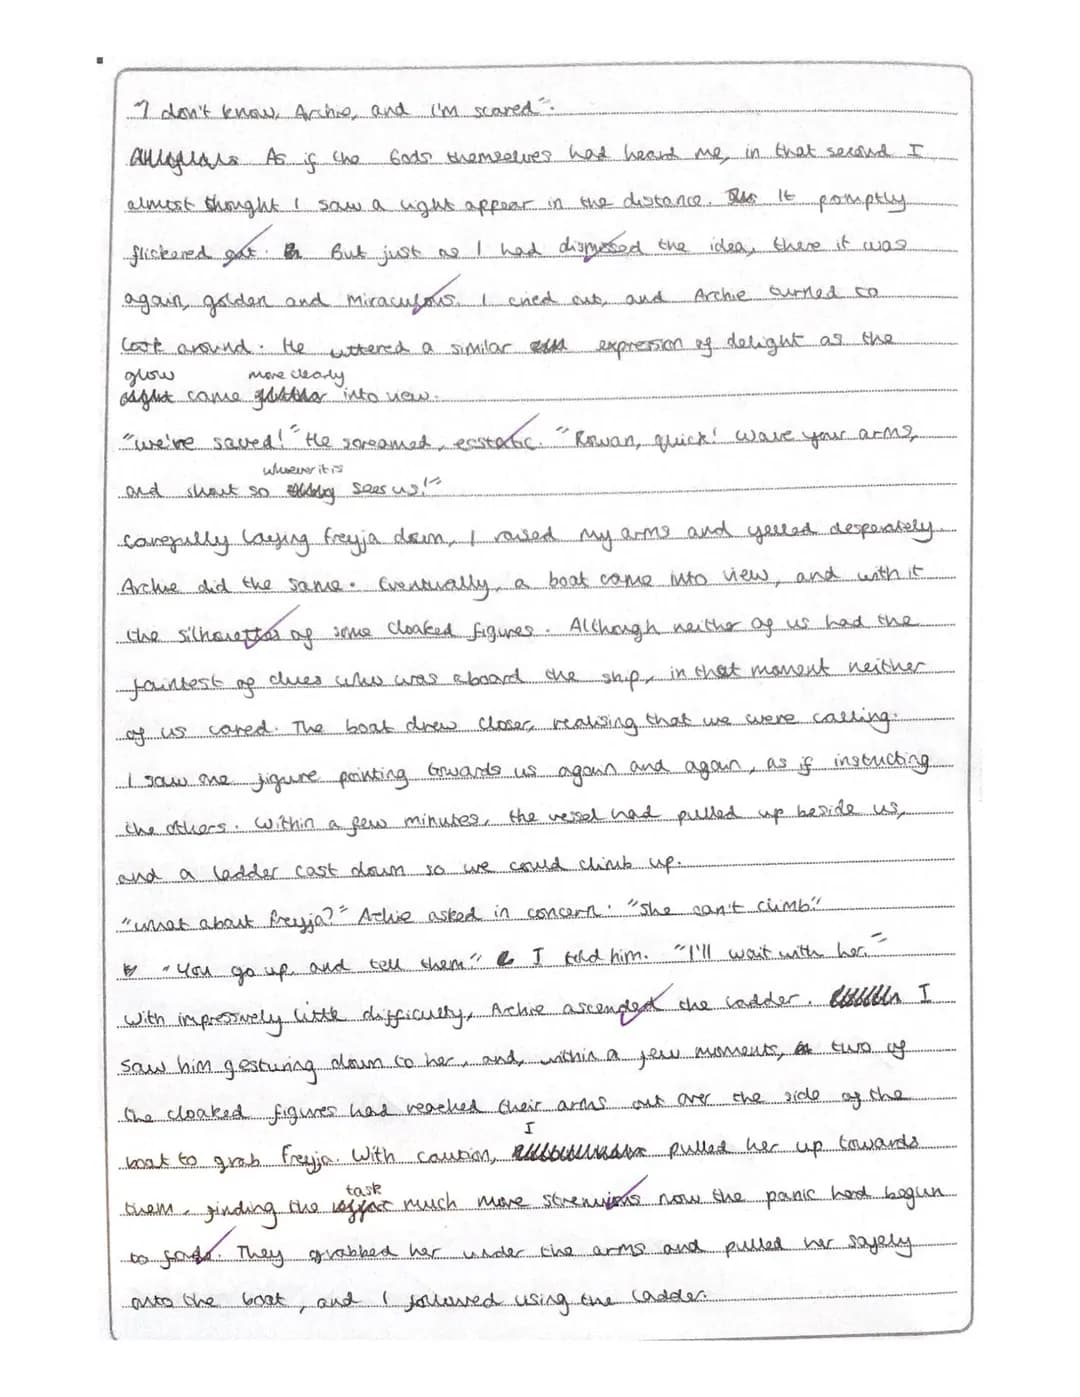 "I don't know, Archie, and I'm scared".
As if the Gods themselves had heard me, in that second I
almost thought I saw a light appear in the distance. It pomptly
flickered out. But just as I had dismissed the idea, there it was
again, golden and miraculous. I cried out, and Archie turned to
look around. He uttered a similar expression of delight as the
glow more clearly
came into view.
"we're saved!" He screamed, ecstatic. "Rowan, quick! Wave your arms,
whoever it is
and shout so sees us!"
Carefully laying Freyja down, I raised my arms and yelled desperately.
Archie did the same. Eventually, a boat came into view, and with it
the silhouettes of some cloaked figures. Although neither of us had the
faintest of clues who was aboard the ship, in that moment neither
of us cared. The boat drew closer, realising that we were calling.
I saw one figure pointing towards us again and again, as if instucting
the others. Within a few minutes, the vessel had pulled up beside us,
and a ladder cast down so we could climb up.
"What about Freyja?" Archie asked in concern. "She can't climb."
"You go up, and tell them" I told him. "I'll wait with her."
With impressively little difficulty, Archie ascended the ladder. I
saw him gesturing down to her, and, within a few moments, two of
the cloaked figures had reached their arms out over the side of the
boat to grab Freyja. With caution, I pulled her up towards
task
them, finding the much more strenuious now the panic had begun
to fade. They grabbed her under the arms and pulled her safely
onto the boat, and I followed using the ladder.